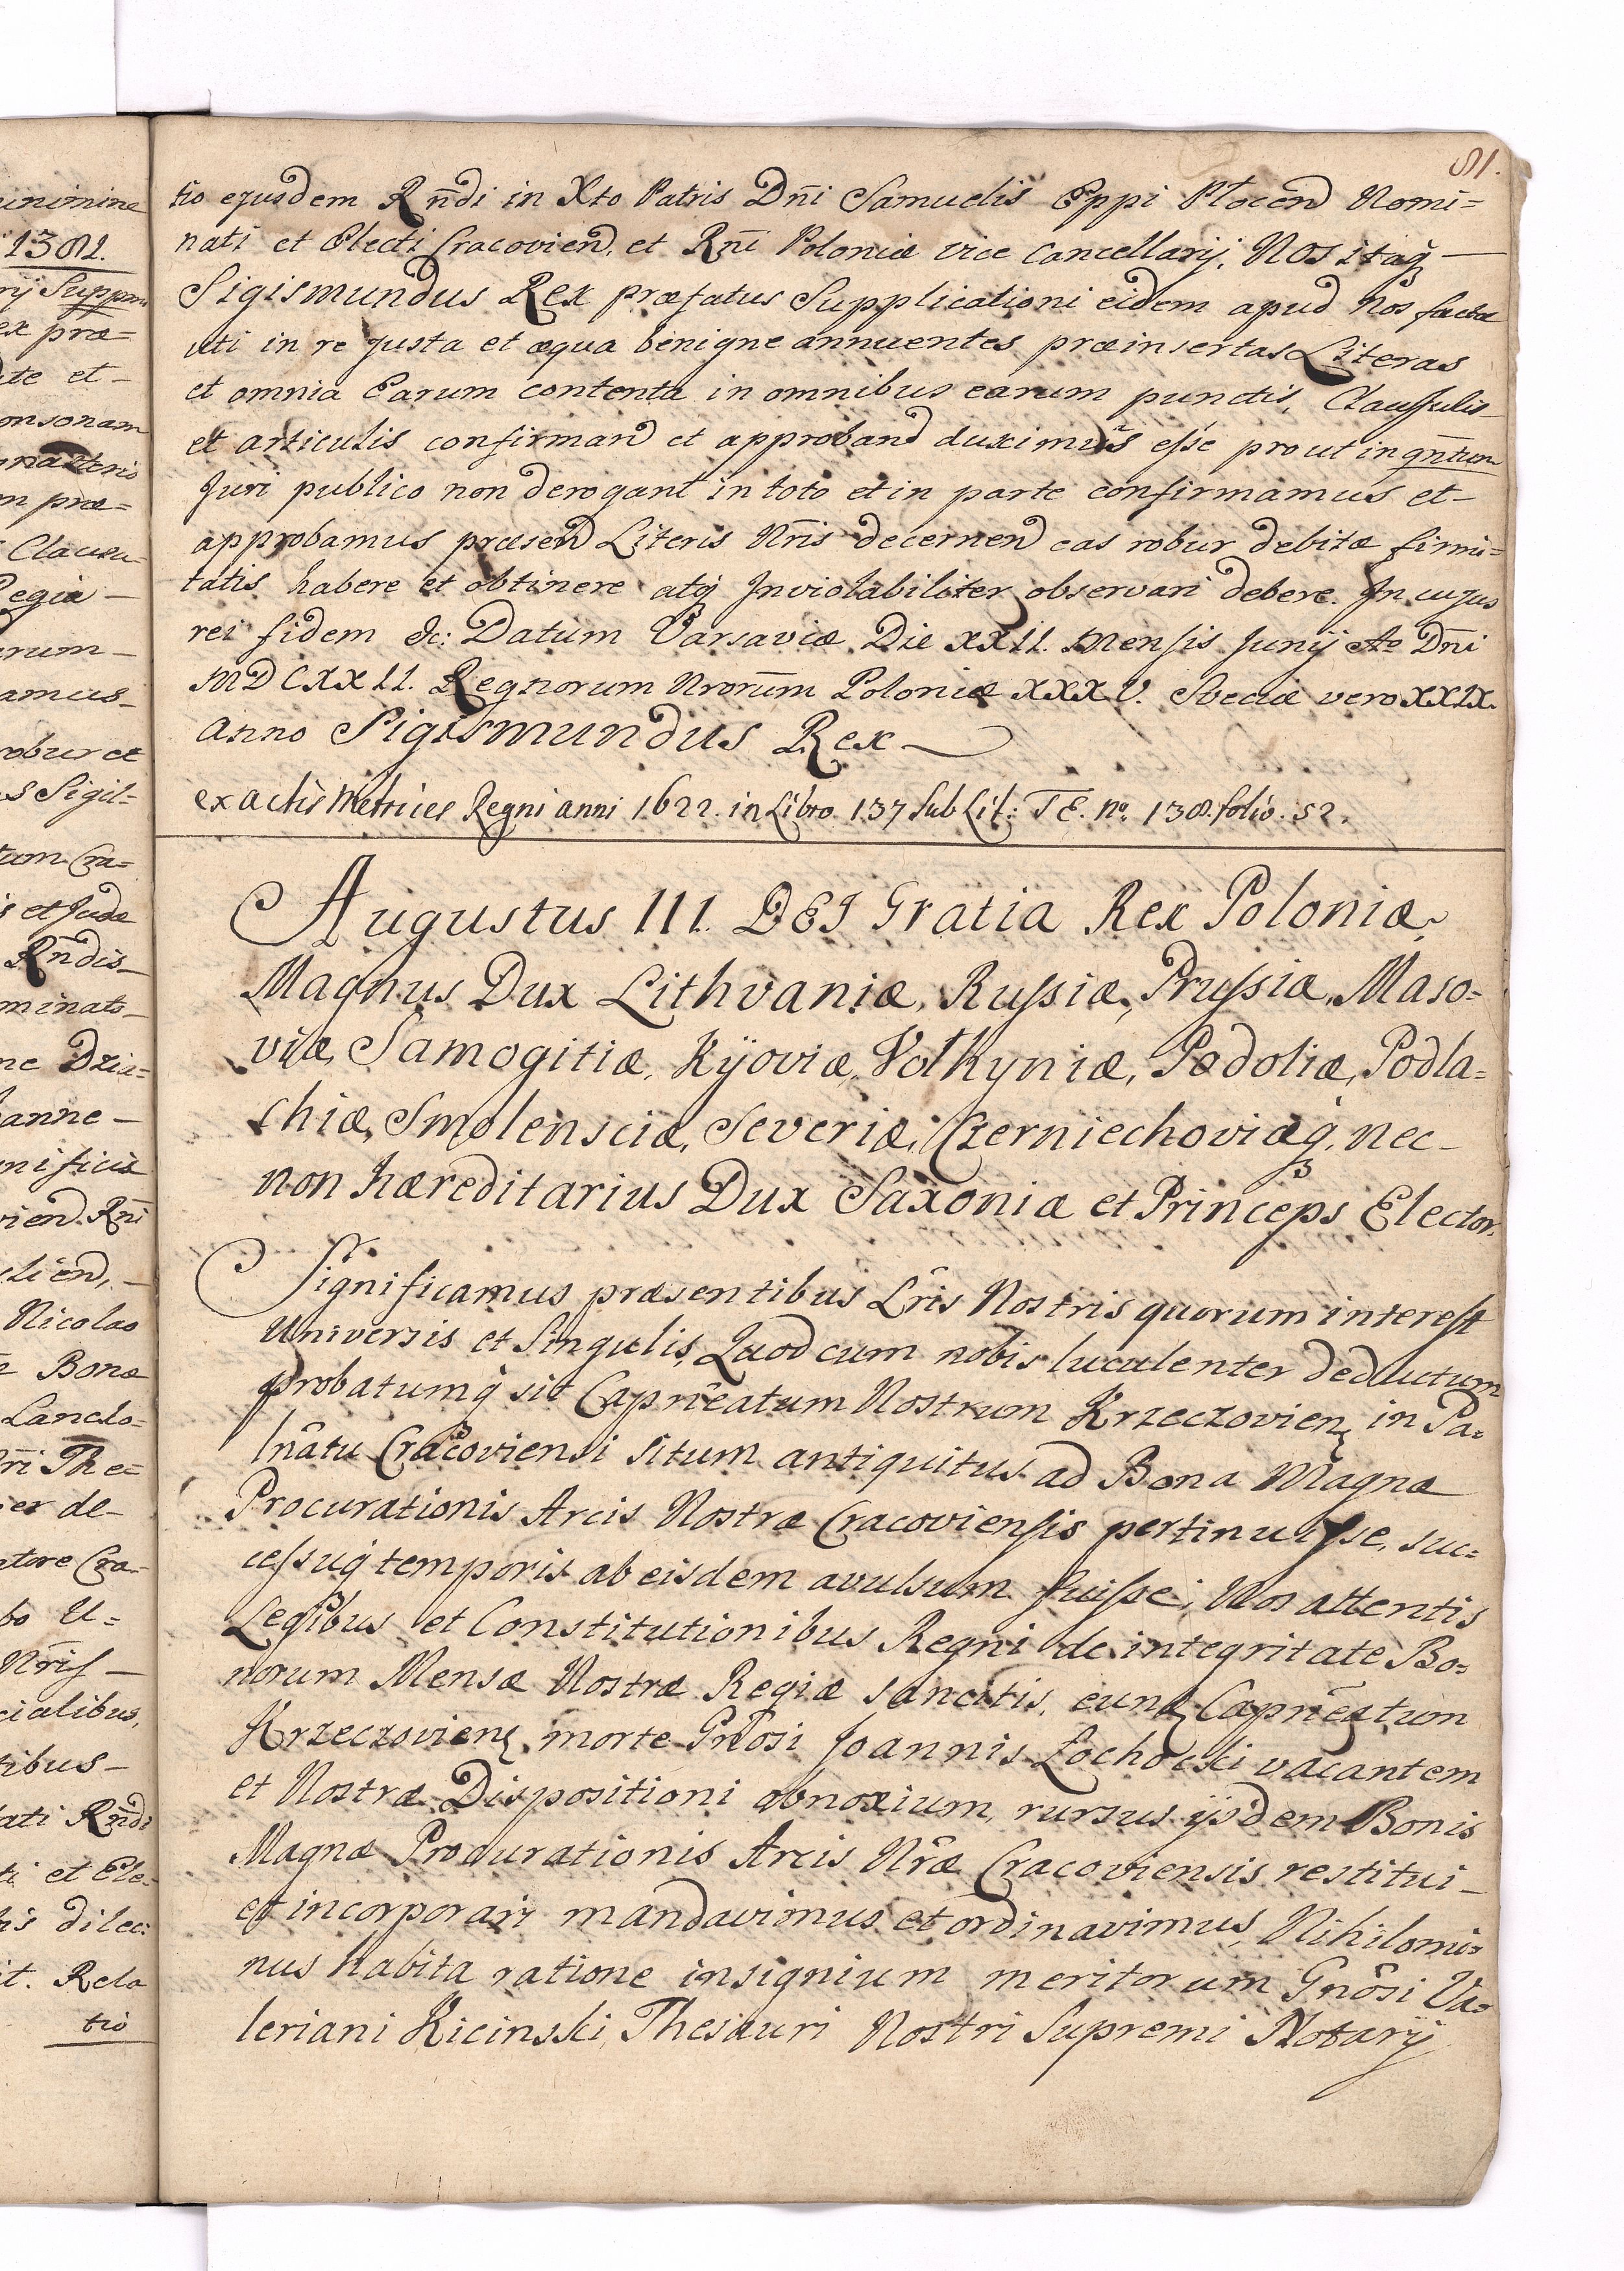 81.
tio ejusdem Rn̄di in Xto Patris Dn̄i Samuelis Eppi Plocen̄ Nomi=
nati et Electi Cracovien̄, et Rn̄i Poloniæ vice Cancellarij. Nos itaq̨ —
Sigismundus Rex præfatus Supplicationi eidem apud Nos factæ
uti in re justa et æqua benigne annuentes præinsertas Literas
et omnia Earum contenta in omnibus earum punctis, Clausulis
et articulis confirmand et approband duximus esse prout in qn̄tum
Juri publico non derogant in toto et in parte confirmamus et –
approbamus præsen̄ Literis Nr̄is decernen̄ eas robur debitæ firmi=
tatis habere et obtinere atq̨ Inviolabiliter observari debere. In cujus
rei fidem &c: Datum Varsaviæ Die XXII. Mensis Junij Ao Dn̄i
MDCXXII. Regnorum Nrorum Poloniæ XXXV. Sveciæ vero XXIX.
anno Sigismundus Rex
ex actis Metrices Regni anni 1622. in Libro 137 sub Lit: TE. No. 138. folio. 52.
Augustus III. DEI Gratia Rex Poloniæ,
Magnus Dux Lithvaniæ, Russiæ, Prussiæ, Maso=
viæ, Samogitiæ, Kijoviæ, Volhyniæ, Podoliæ, Podla=
chiæ, Smolensciæ, Severiæ, Czerniechoviæq̨, nec –
non hæreditarius Dux Saxoniæ et Princeps Elector.
Significamus præsentibus Lr̄is Nostris quorum interest
Universis et Singulis, Quod cum nobis luculenter deductum
probatumq̨ sit Capn̄eatum Nostrum Krzeczovien̨ in Pa=
ln̄atu Cracoviensi situm antiquitus ad Bona Magnæ
Procurationis Arcis Nostræ Cracoviensis pertinuisse, suc=
cessuq̨ temporis ab eisdem avulsum fuisse; Nos attentis
Legibus et Constitutionibus Regni de integritate Bo=
norum Mensæ Nostræ Regiæ sancitis, eund̨ Capn̄eatum
Krzeczovien̨ morte Gn̄osi Joannis Łochocki vacantem
et Nostræ Dispositioni obnoxium, rursus ijsdem Bonis
Magnæ Procurationis Arcis Nr̄æ Cracoviensis restitui –
et incorporari mandavimus et ordinavimus, Nihilomi=
nus habita ratione insignium meritorum Gn̄osi Va=
leriani Kicinski, Thesauri Nostri Supremi Notarij